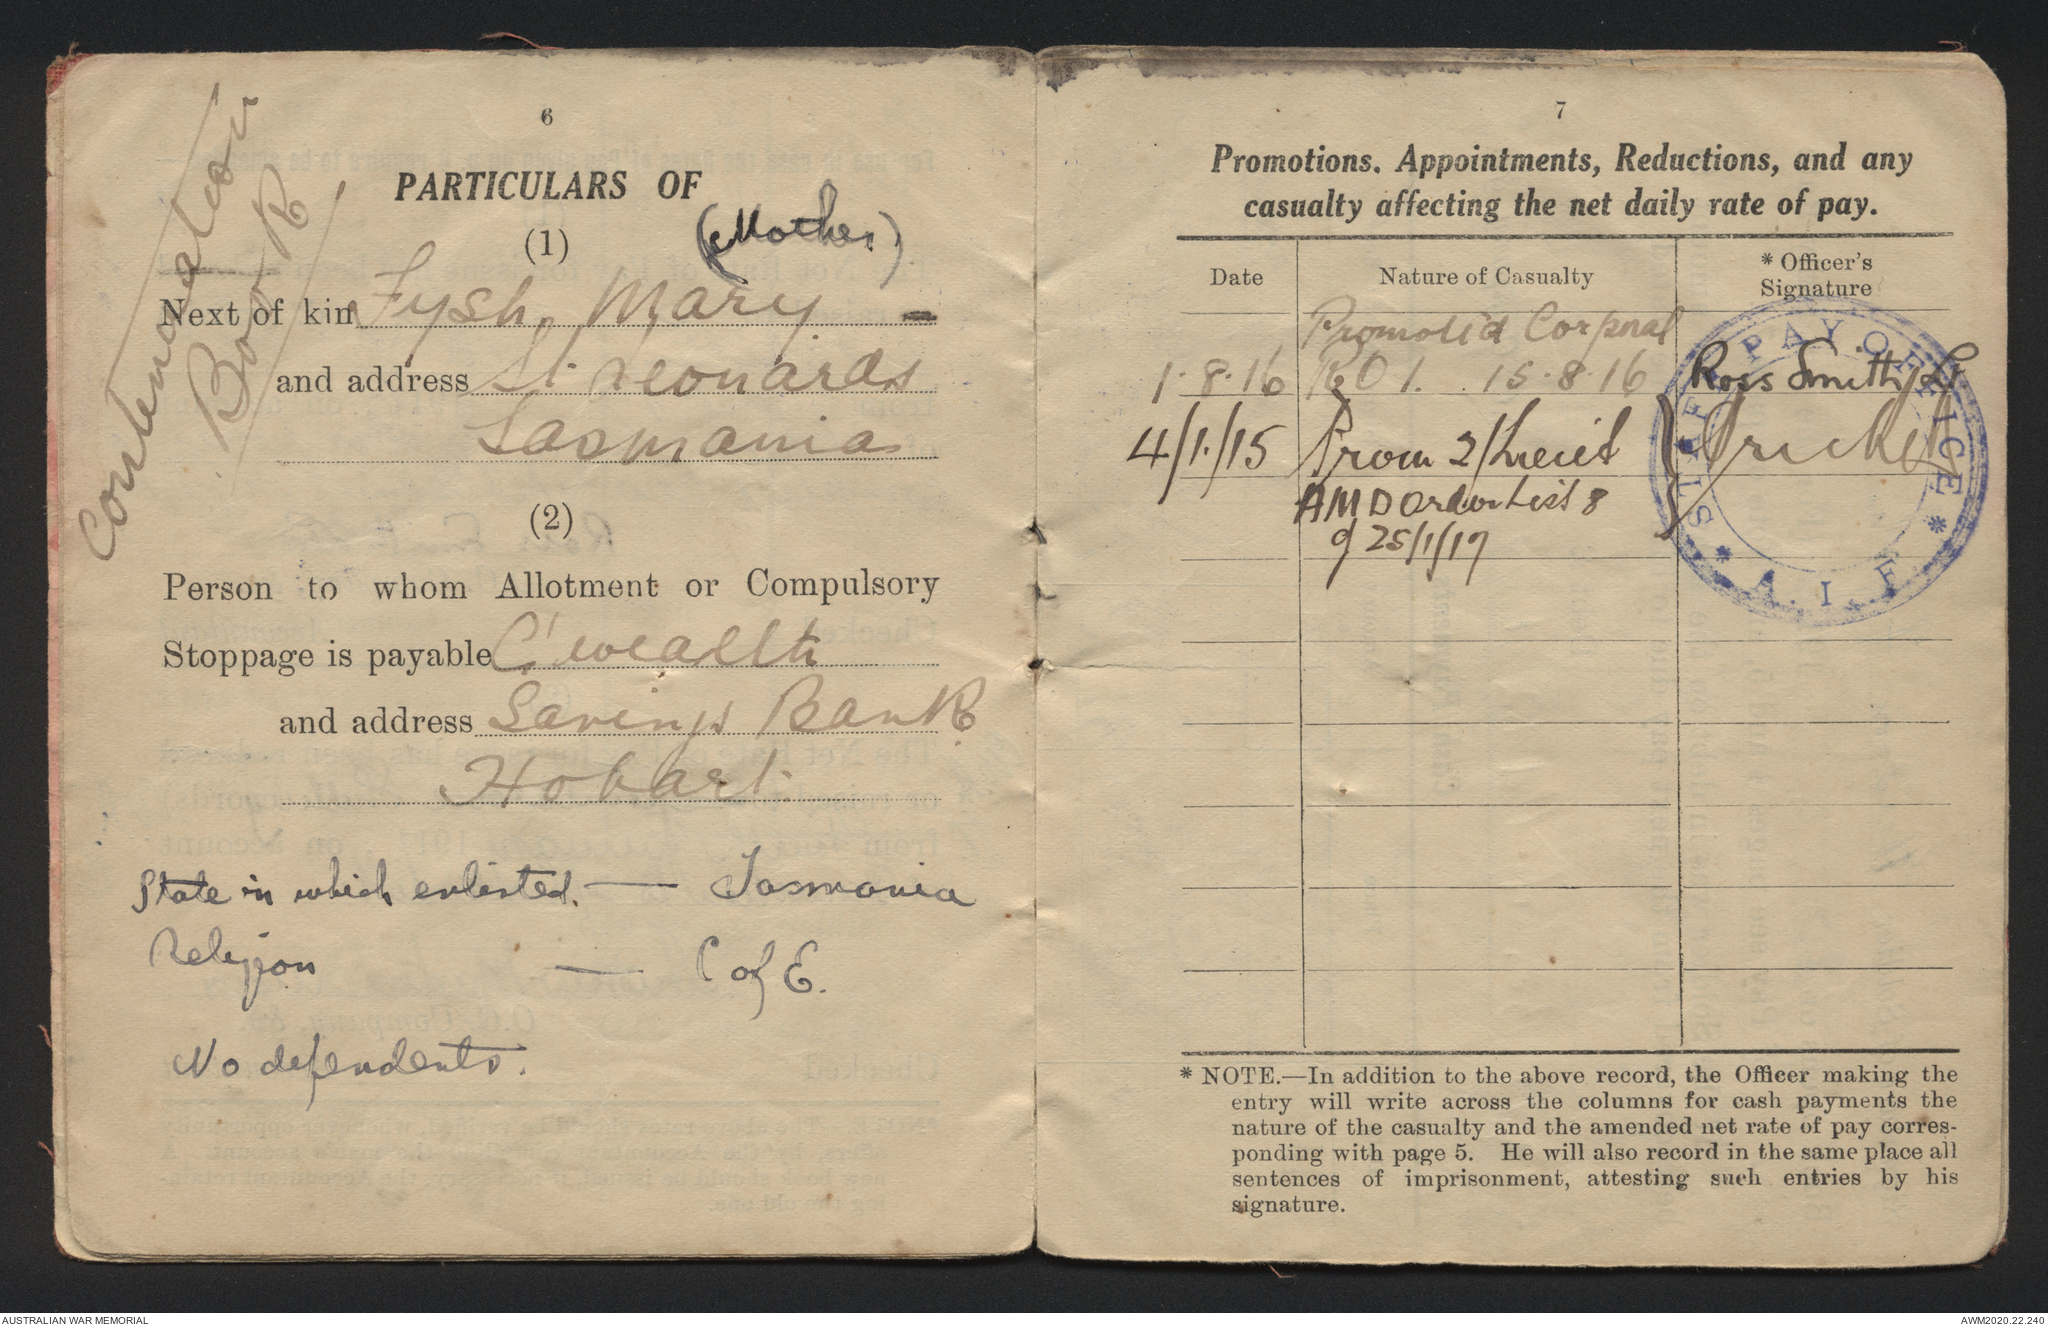 6
Continuation
Book
PARTICULARS OF
(1) (Mother)
Next of kin Fysh, Mary
and address St. Leonards
Tasmania
(2)
Person to whom Allotment or Compulsory
Stoppage is payable C'wealth
and address Savings Bank
Hobart.
State in which enlisted. — Tasmania
Religion — C of E.
No dependents.
7
Promotions. Appointments, Reductions, and any
casualty affecting the net daily rate of pay.
Date Nature of Casualty * Officer's
Signature
Promoted Corporal
1.8.16 RO 1. 15.8.16 Ross Smith Lt
4/1/15 Prom 2/Lieut
AMD Order List 8
d/ 25/1/17
STAFF PAY OFFICE
* A. I. F. *
* NOTE.—In addition to the above record, the Officer making the
entry will write across the columns for cash payments the
nature of the casualty and the amended net rate of pay corres-
ponding with page 5. He will also record in the same place all
sentences of imprisonment, attesting such entries by his
signature.
AUSTRALIAN WAR MEMORIAL
AWM2020.22.240